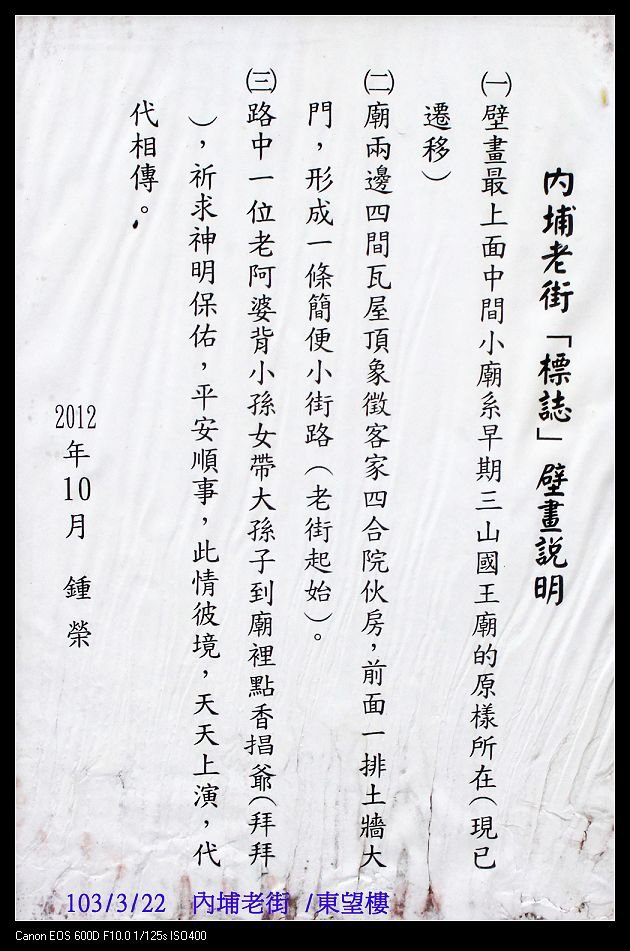 內埔老街「標誌」壁畫說明
㈠壁畫最上面中間小廟系早期三山國王廟的原樣所在(現已
遷移)
㈡廟兩邊四間瓦屋頂象徵客家四合院伙房,前面一排土牆大
門,形成一條簡便小街路(老街起始)。
㈢路中一位老阿婆背小孫女帶大孫子到廟裡點香掯爺(拜拜
),祈求神明保佑,平安順事,此情彼境,天天上演,代
代相傳。
2012年10月 鍾榮
103/3/22 內埔老街 /東望樓
Canon EOS 600D F10.0 1/125s ISO400